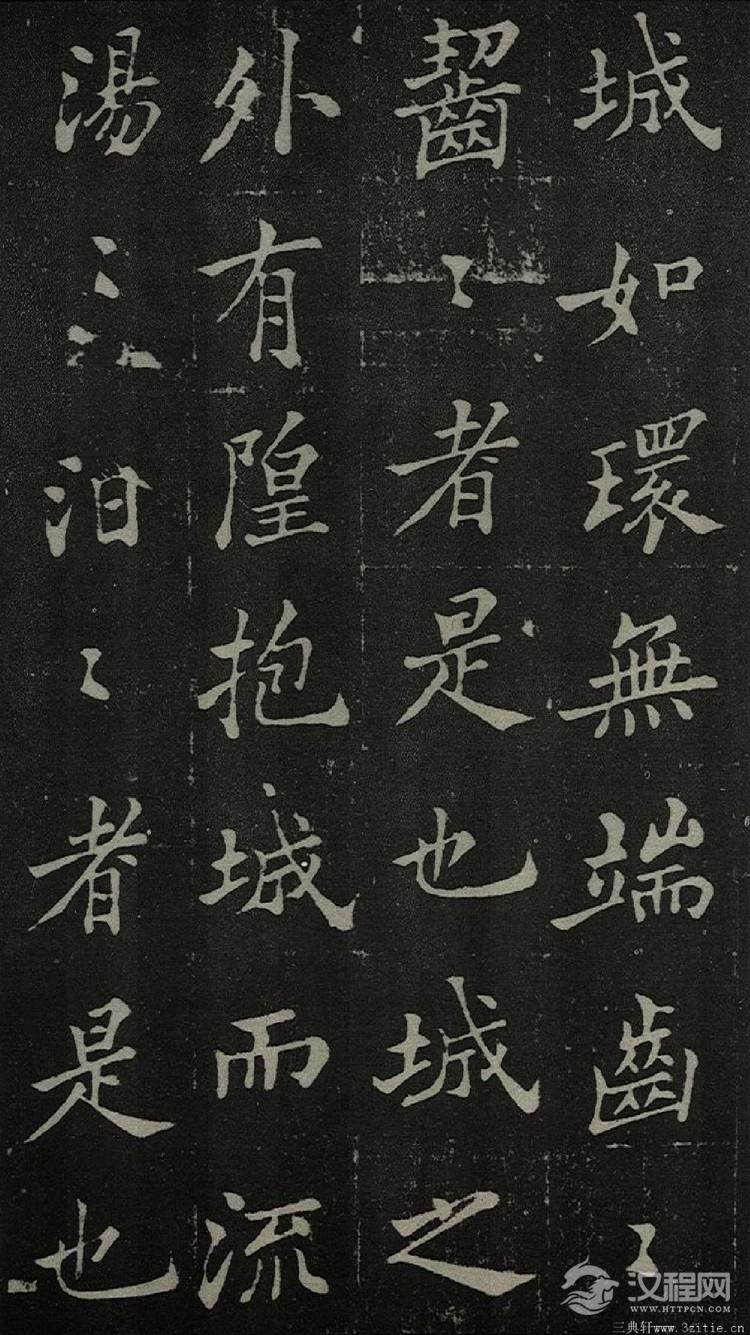 城如環無端齒〻
齧〻者是也城之
外有隍抱城而流
湯〻汩〻者是也
汉程网
WWW.HTTPCN.COM
三典轩www.3zitie.cn